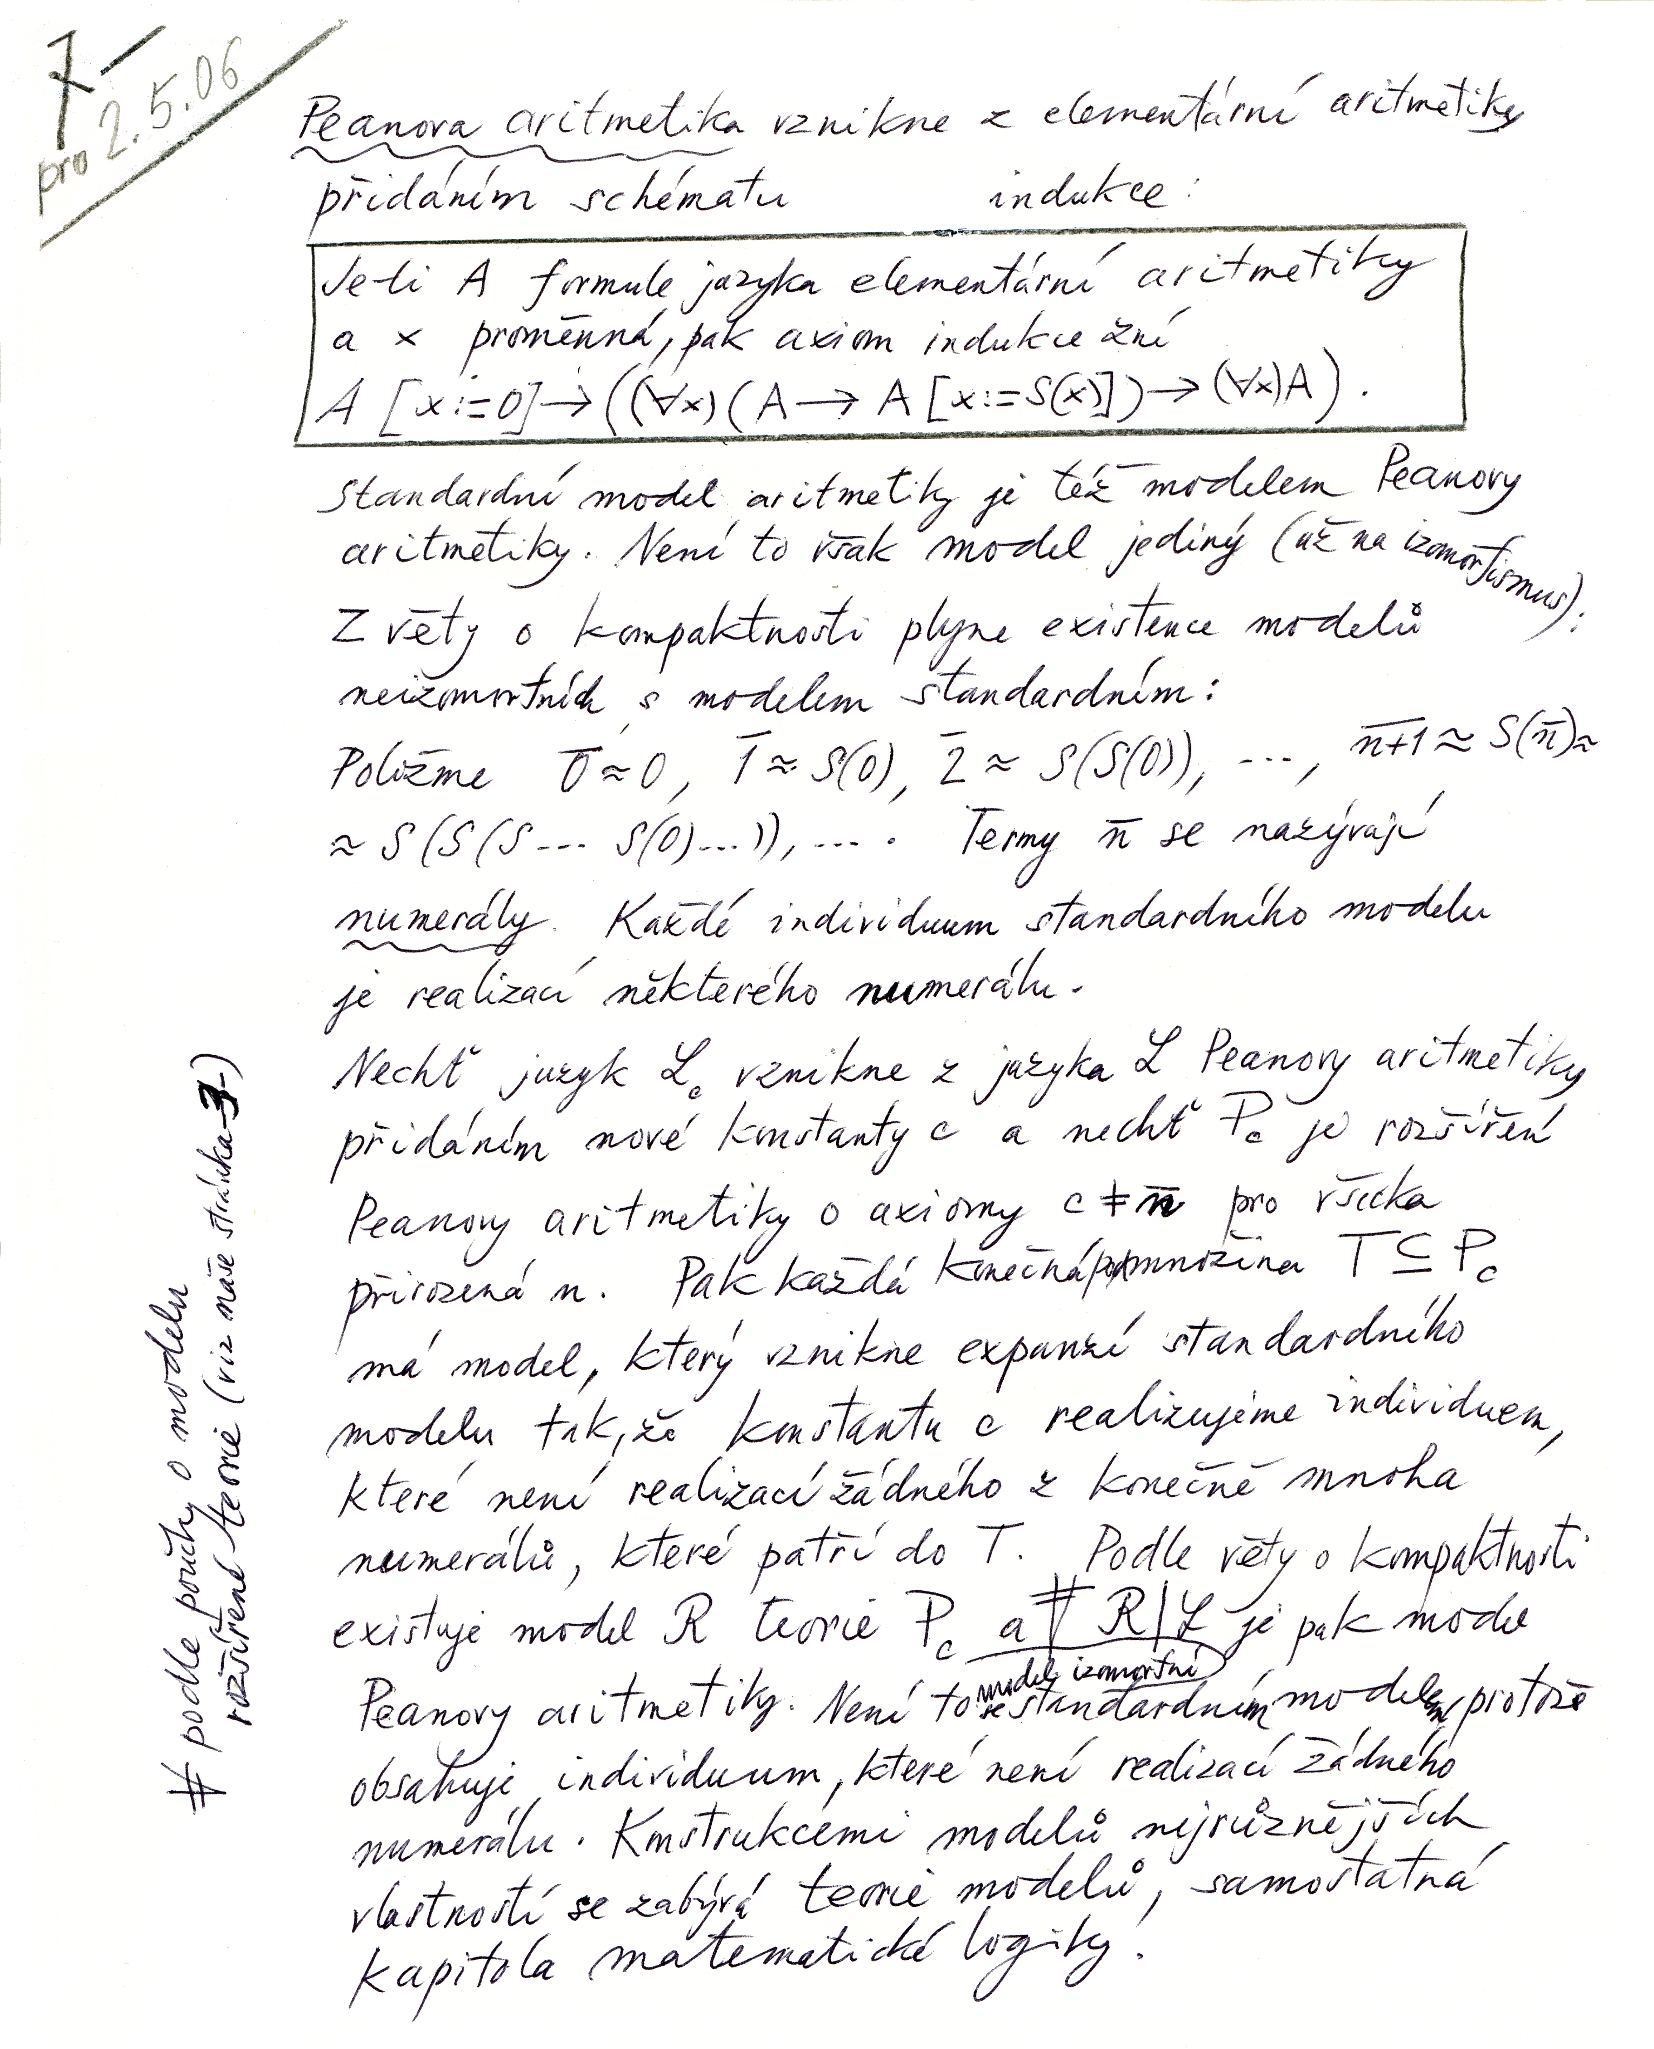 7-
pro 2.5.06
Peanova aritmetika vznikne z elementární aritmetiky
přidáním schématu indukce:
Je-li A formule jazyka elementární aritmetiky
a x proměnná, pak axiom indukce zní
A [x:=0]→((∀x)(A→A[x:=S(x)])→(∀x)A).
Standardní model aritmetiky je též modelem Peanovy
aritmetiky. Není to však model jediný (až na izomorfismus):
Z věty o kompaktnosti plyne existence modelů
neizomorfních s modelem standardním:
Položme 0̅≈0, 1̅≈S(0), 2̅≈S(S(0)), ..., n̅+̅1̅≈S(n̅)≈
≈S(S(S--- S(0)...)), .... Termy n̅ se nazývají
numerály. Každé individuum standardního modelu
je realizací některého numerálu.
Nechť jazyk ℒc vznikne z jazyka ℒ Peanovy aritmetiky
přidáním nové konstanty c a nechť Pc je rozšíření
Peanovy aritmetiky o axiomy c≠n̅ pro všecka
přirozená n. Pak každá konečná podmnožina T⊆Pc
má model, který vznikne expanzí standardního
modelu tak, že konstantu c realizujeme individuem,
které není realizací žádného z konečně mnoha
numerálů, které patří do T. Podle věty o kompaktnosti
existuje model R teorie Pc a # R|ℒ je pak model
Peanovy aritmetiky. Není to model izomorfní se standardním modelem, protože
obsahuje individuum, které není realizací žádného
numerálu. Konstrukcemi modelů nejrůznějších
vlastností se zabývá teorie modelů, samostatná
kapitola matematické logiky.
# podle poučky o modelu
rozšířené teorie (viz naše stránka -3-)